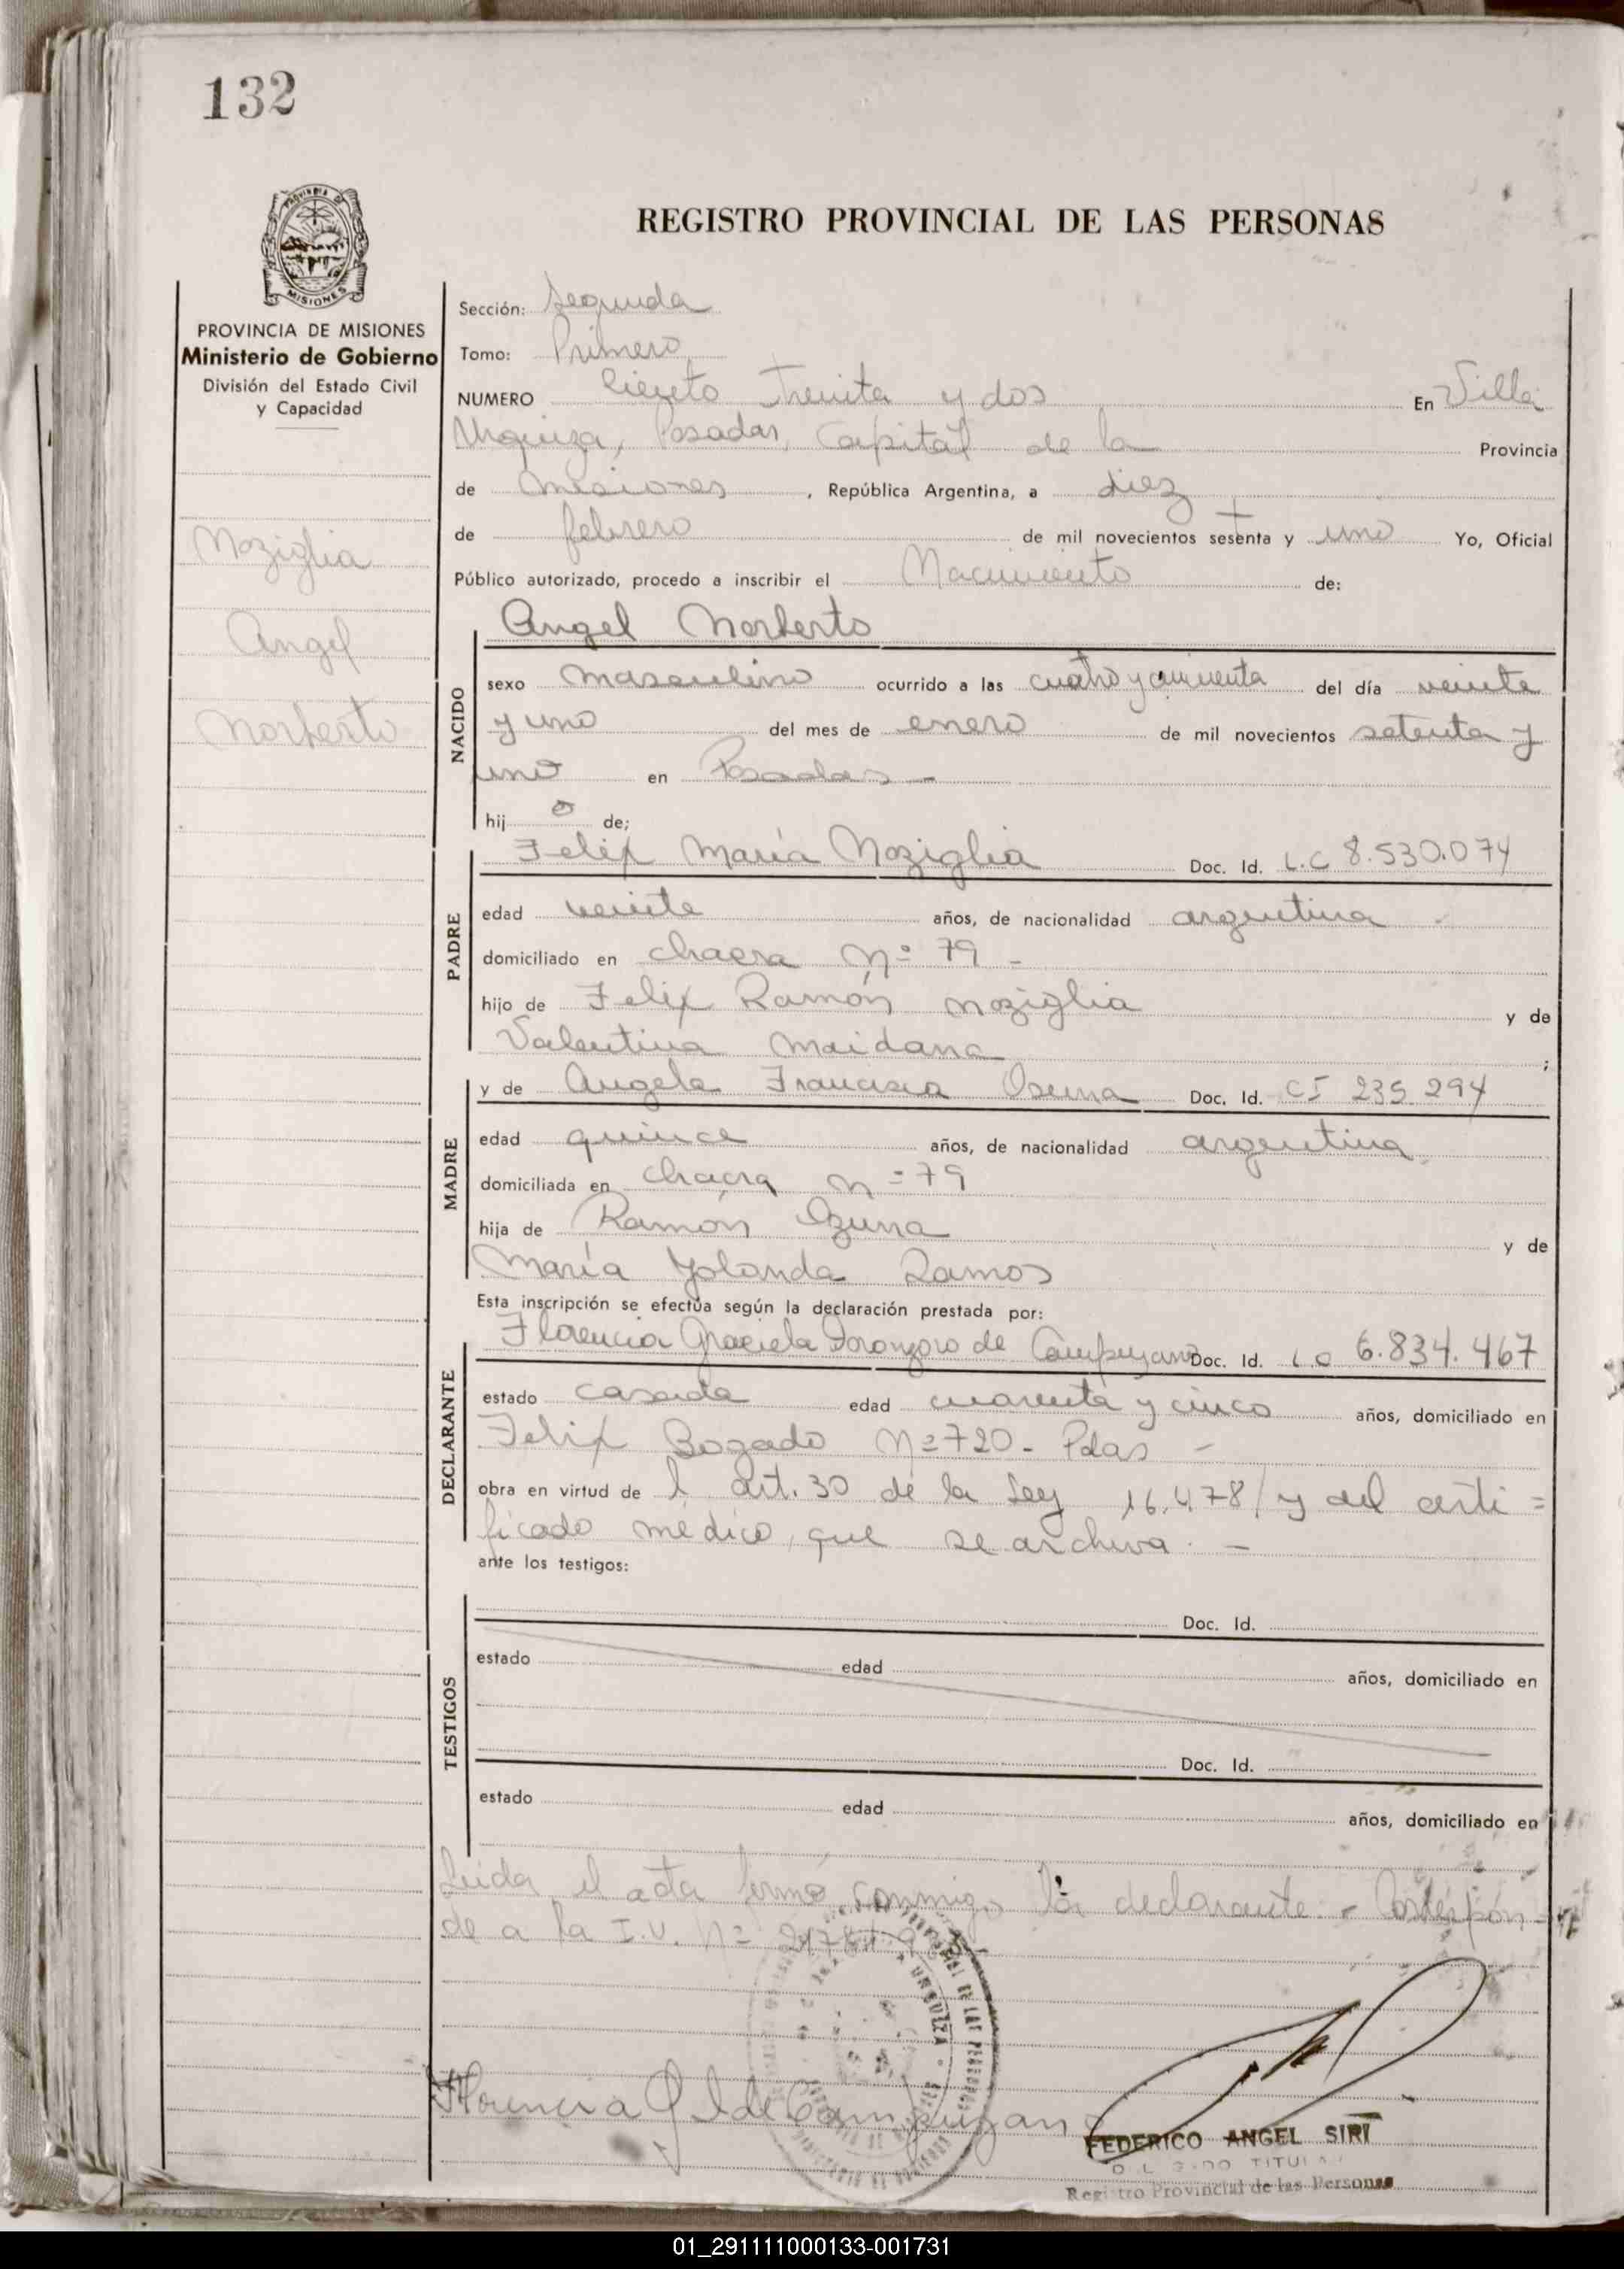 132
REGISTRO PROVINCIAL DE LAS PERSONAS
MISIONES
PROVINCIA DE MISIONES
Ministerio de Gobierno
División del Estado Civil
y Capacidad
Noziglia
Angel
Norberto
Sección: Segunda
Tomo: Primero
NUMERO Ciento Treinta y dos En Villa
Urquiza, Posadas, Capital de la Provincia
de Misiones, República Argentina, a diez
de febrero de mil novecientos sesenta y uno Yo, Oficial
Público autorizado, procedo a inscribir el Nacimiento de:
Angel Norberto
NACIDO
sexo masculino ocurrido a las cuatro y cincuenta del día veinte
y uno del mes de enero de mil novecientos setenta y
uno en Posadas -
hijo de;
Felix María Noziglia Doc. Id. L.C 8.530.074
PADRE
edad veinte años, de nacionalidad argentina -
domiciliado en chacra Nº 79 -
hijo de Felix Ramón Noziglia y de
Valentina Maidana ;
MADRE
y de Angela Francisca Osuna Doc. Id. CI 235.294
edad quince años, de nacionalidad argentina
domiciliada en chacra n = 79
hija de Ramón Ozuna y de
María Yolanda Ramos
Esta inscripción se efectúa según la declaración prestada por:
DECLARANTE
Florencia Graciela de Campuzano Doc. Id. L.C 6.834.467
estado casada edad cuarenta y cinco años, domiciliado en
Felix Bogado Nº 720 - Pdas -
obra en virtud de l art. 30 de la Ley 16.478/ y del certi =
ficado médico, que se archiva. -
ante los testigos:
TESTIGOS
Doc. Id.
estado edad años, domiciliado en
Doc. Id.
estado edad años, domiciliado en
Leida el acta firmó conmigo la declarante - Correspon-
de a la I.U. Nº
Florencia G de Campuzano
FEDERICO ANGEL SIRI
Registro Provincial de las Personas
01_291111000133-001731